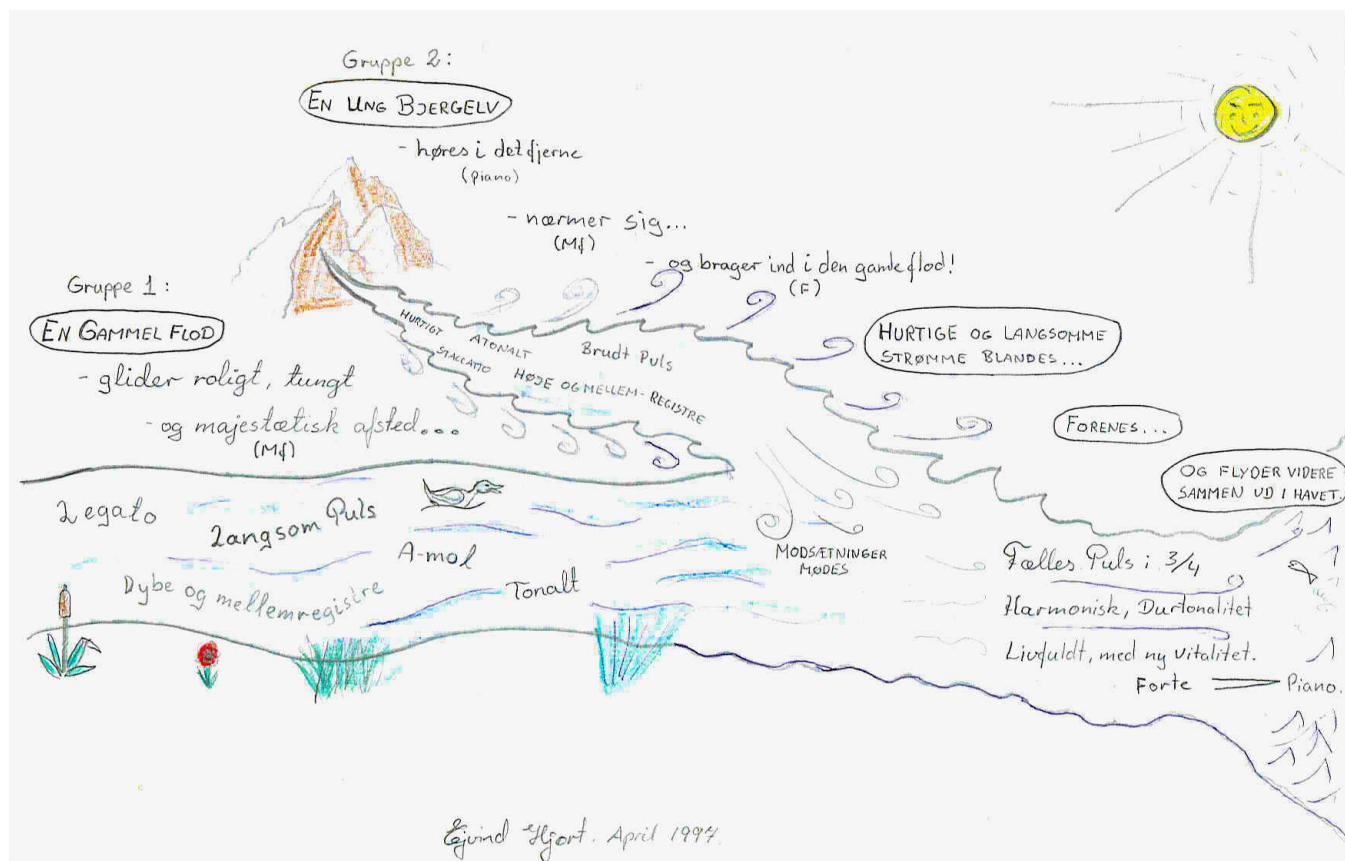 Gruppe 2:
EN UNG BJERGELV
- høres i det fjerne
(piano)
- nærmer sig...
(Mf)
- og brager ind i den gamle flod!
(F)
Gruppe 1:
EN GAMMEL FLOD
- glider roligt, tungt
- og majestætisk afsted...
(Mf)
HURTIGT
ATONALT
STACCATO
Brudt Puls
HØJE OG MELLEM-REGISTRE
HURTIGE OG LANGSOMME
STRØMME BLANDES...
FORENES...
OG FLYDER VIDERE
SAMMEN UD I HAVET
Legato
Langsom Puls
A-mol
Dybe og mellemregistre
Tonalt
MODSÆTNINGER
MØDES
Fælles Puls i 3/4
Harmonisk, Durtonalitet
Livfuldt, med ny vitalitet.
Forte
Piano.
Ejvind Hjort. April 1997.